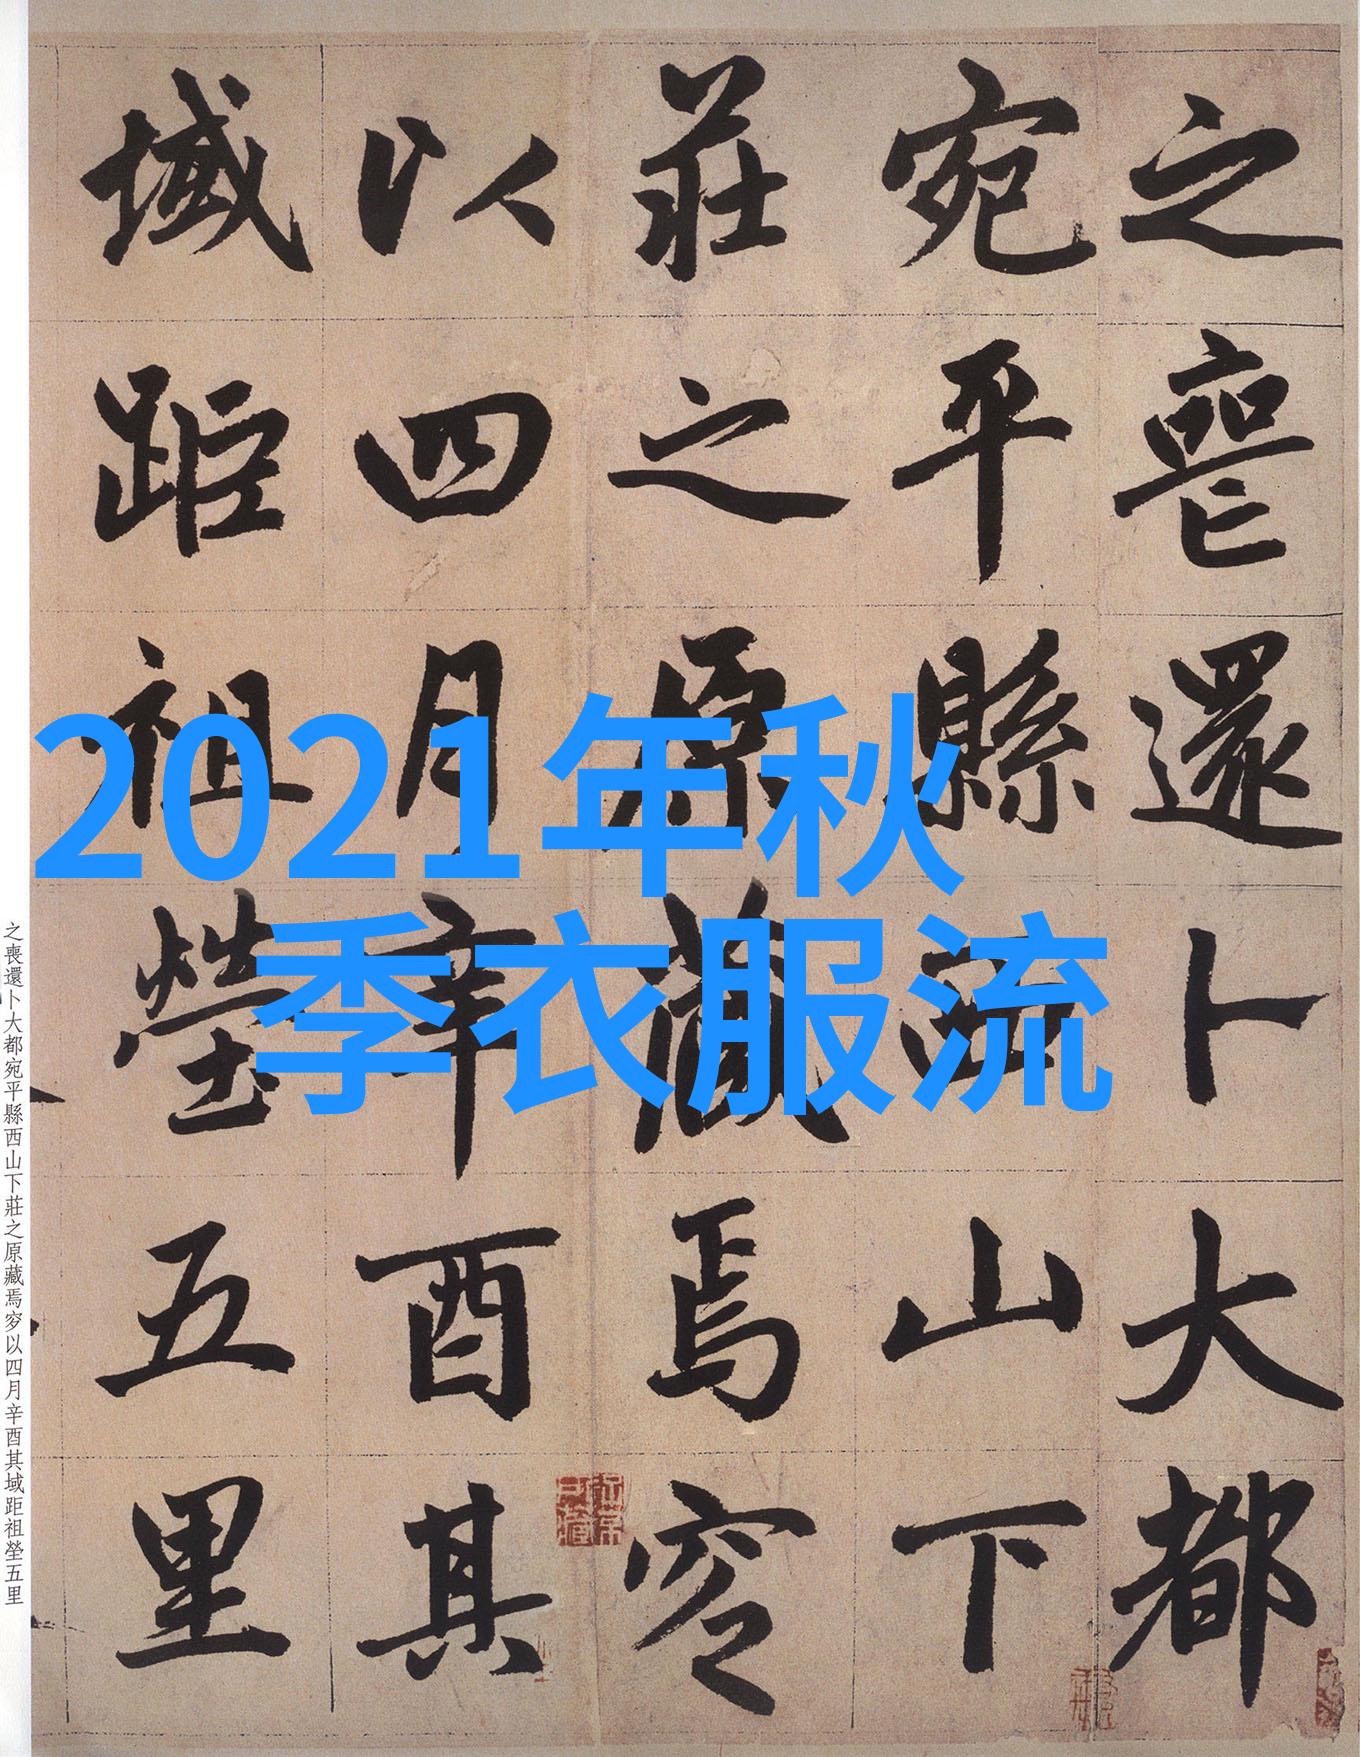 之喪還卜大都
宛平縣西山下
莊之原藏焉窆
以四月辛酉其
域距祖塋五里
2021年秋
季衣服流
之喪還卜大都宛平縣西山下莊之原藏焉窆以四月辛酉其域距祖塋五里